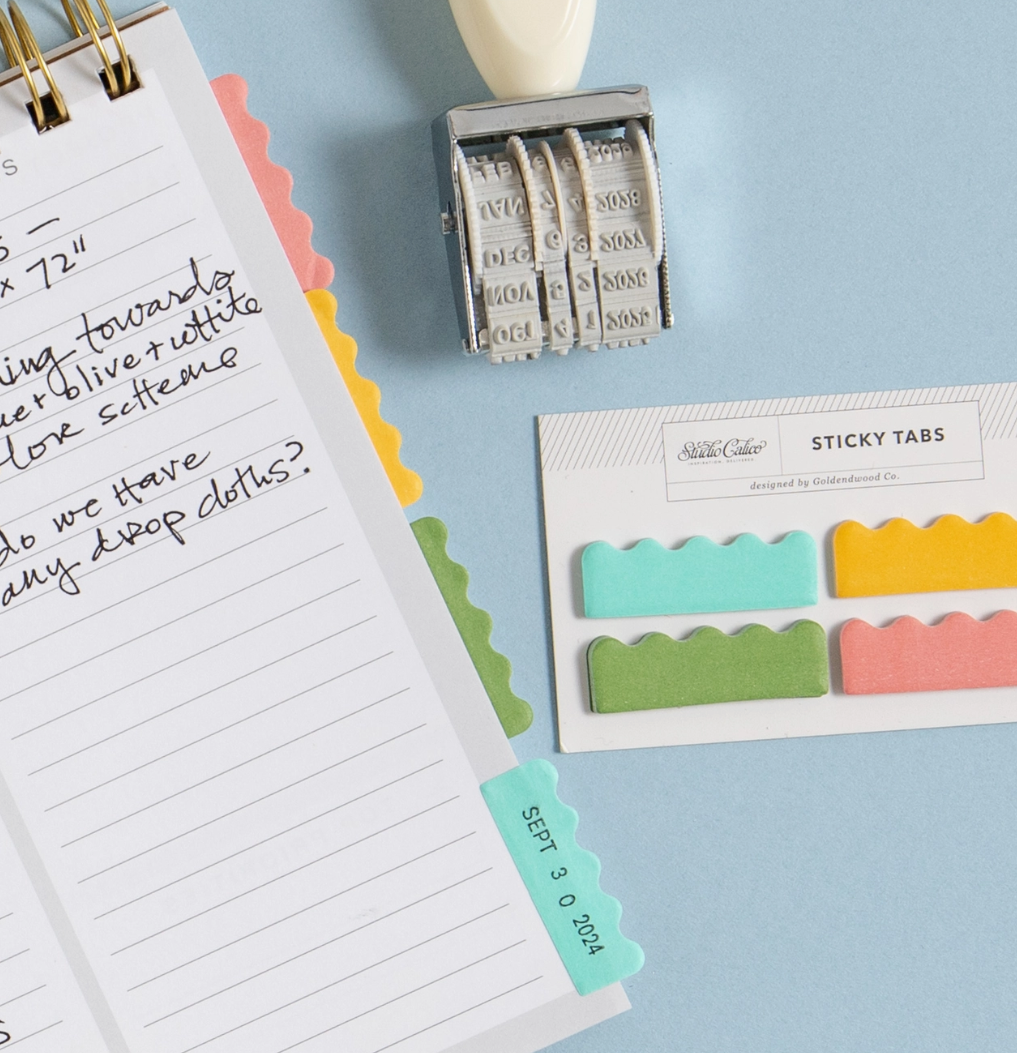 s
s —
x 72"
ing towards
ue + olive + white
lor scheme
do we have
any drop cloths?
FEB 2029
JAN 7 4 2028
DEC 9 3 2027
NOV 8 2 2026
OCT 1 2025
Studio Calico
INSPIRATION, DELIVERED
STICKY TABS
designed by Goldendwood Co.
SEPT 3 0 2024
s